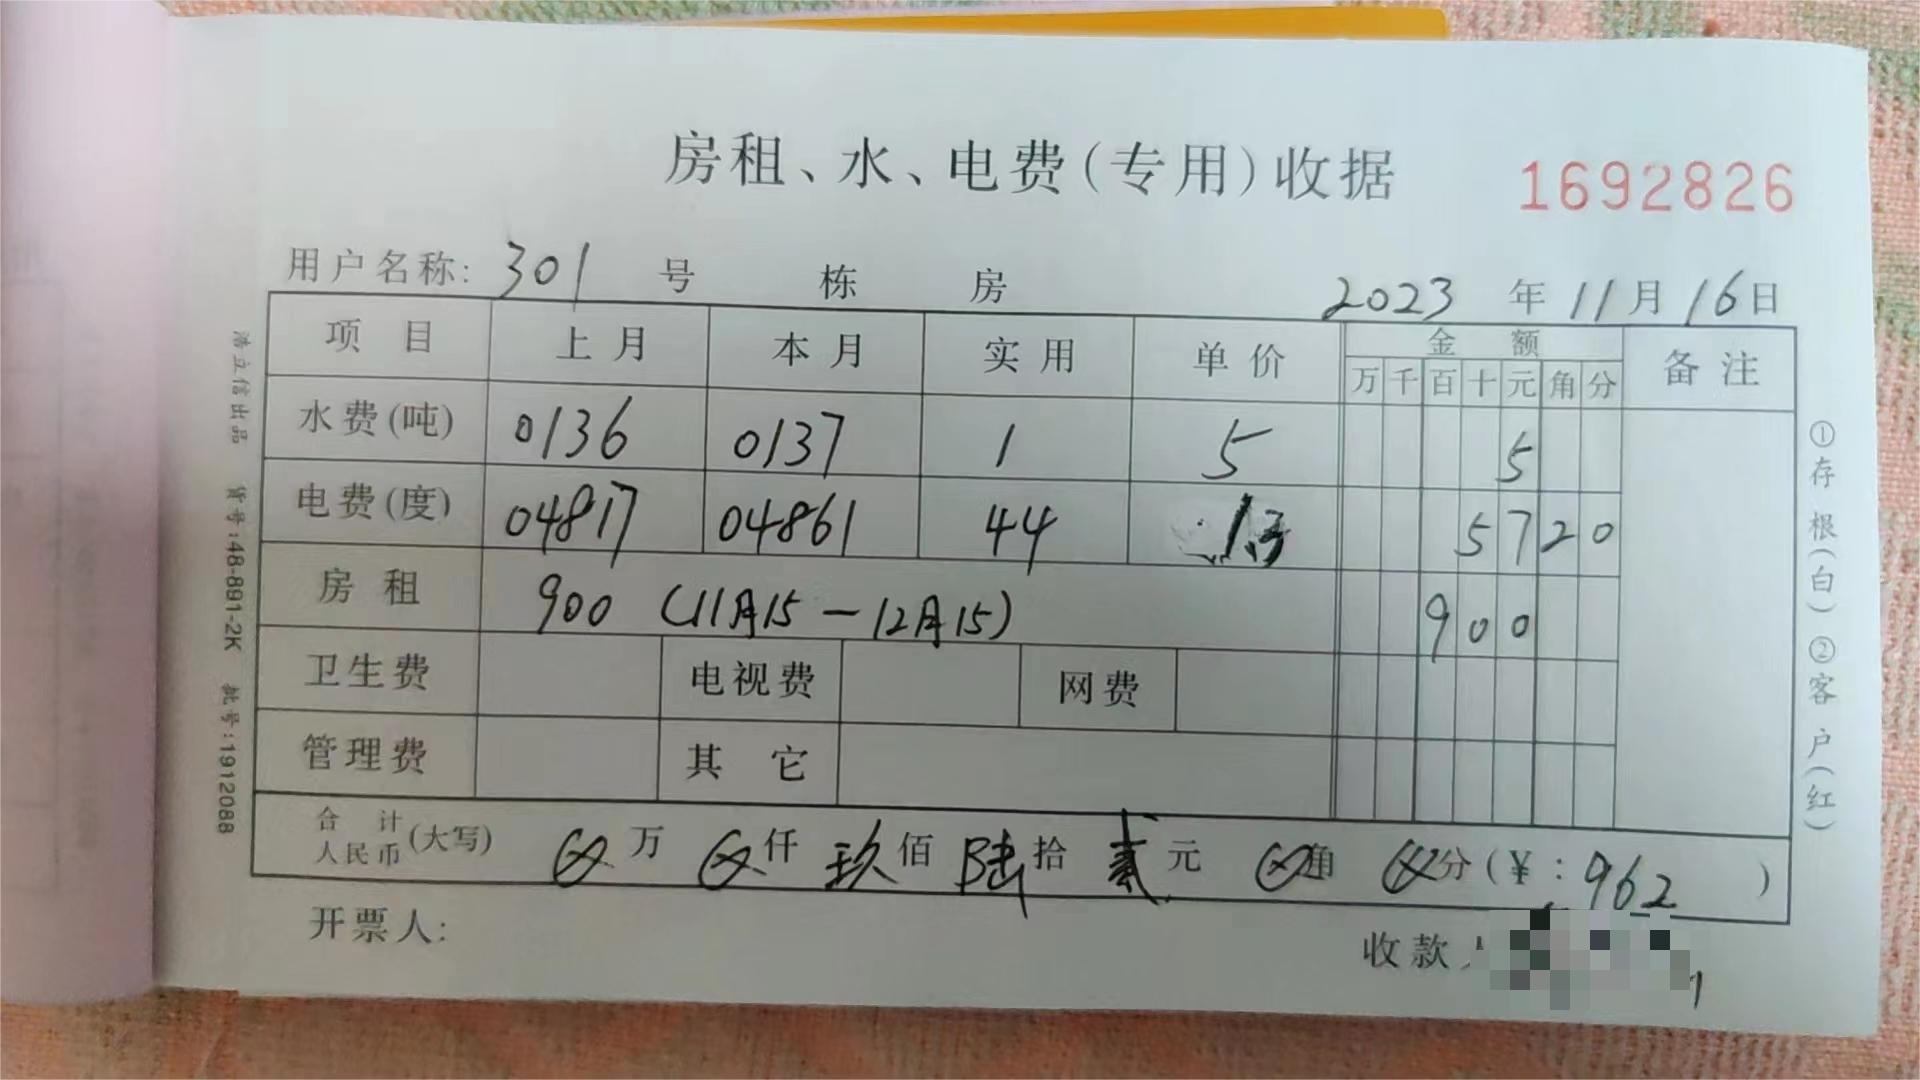 房租、水、电费(专用)收据 1692826
用户名称: 301 号 栋 房 2023 年 11 月 16 日
项目 上月 本月 实用 单价 金额 备注
万 千 百 十 元 角 分
水费(吨) 0136 0137 1 5 5
电费(度) 04817 04861 44 1.3 57 20
房租 900 (11月15 — 12月15) 900
卫生费 电视费 网费
管理费 其它
合计
人民币 (大写) 万 仟 玖 佰 陆 拾 贰 元 角 分 (¥: 962 )
开票人: 收款
浩立信出品 货号:48-891-2K 批号:1912088
①存根(白) ②客户(红)